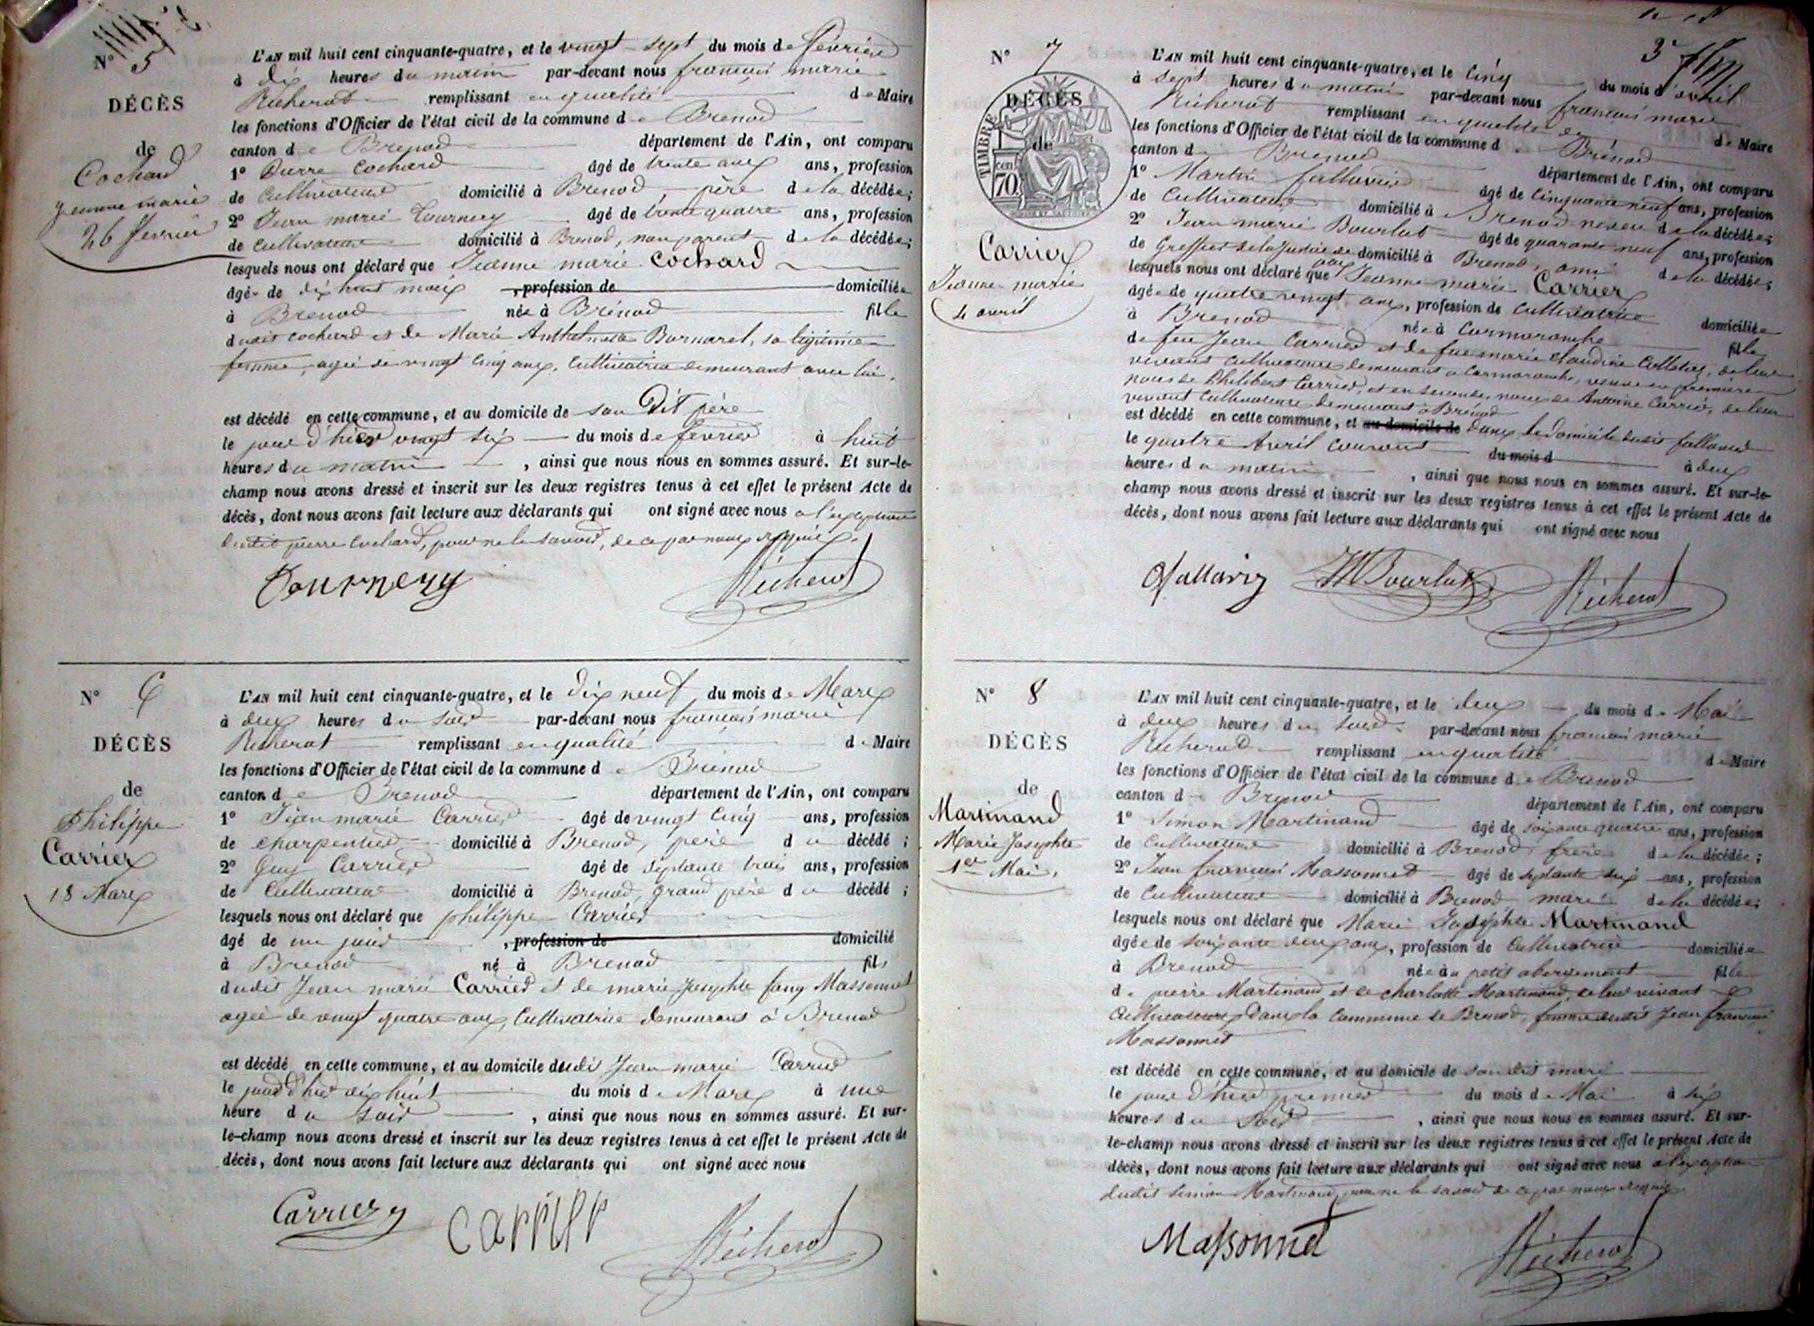 N° 5
DÉCÈS
de
Cochard
Jeanne marie
26 fevrier
L'AN mil huit cent cinquante-quatre, et le vingt sept du mois de fevrier
à dix heures du matin par-devant nous francois marie
Richerot remplissant en qualité de Maire
les fonctions d'Officier de l'état civil de la commune de Brenod
canton de Brenod département de l'Ain, ont comparu
1° Pierre Cochard âgé de trente ans, profession
de Cultivateur domicilié à Brenod, père de la décédée;
2° Jean marie Tournery âgé de trente quatre ans, profession
de cultivateur domicilié à Brenod, non parent de la décédée;
lesquels nous ont déclaré que Jeanne marie Cochard
âgée de dix huit mois, profession de domiciliée
à Brenod née à Brénod fille
dudit cochard et de Marie Bornarel, sa légitime
femme, agée de vingt cinq ans, Cultivatrice demeurant avec lui.
est décédé en cette commune, et au domicile de son dit père
le jour d'hier vingt six du mois de fevrier à huit
heures du matin, ainsi que nous nous en sommes assuré. Et sur-le-
champ nous avons dressé et inscrit sur les deux registres tenus à cet effet le présent Acte de
décès, dont nous avons fait lecture aux déclarants qui ont signé avec nous a l'exception
dudit pierre Cochard, pour ne le savoir, de ce par nous requis.
Tournery Richerot
N° 6
DÉCÈS
de
Philippe
Carrier
18 Mars
L'AN mil huit cent cinquante-quatre, et le dix neuf du mois de Mars
à deux heures du soir par-devant nous francois marie
Richerot remplissant en qualité de Maire
les fonctions d'Officier de l'état civil de la commune de Brénod
canton de Brenod département de l'Ain, ont comparu
1° Jean marie Carrier âgé de vingt cinq ans, profession
de charpentier domicilié à Brenod, père du décédé;
2° Guy Carrier âgé de septante trois ans, profession
de Cultivateur domicilié à Brenod, grand père du décédé;
lesquels nous ont déclaré que philippe Carrier
âgé de un jour, profession de domicilié
à Brenod né à Brenod fils
dudit Jean marie Carrier et de marie Josephte fany Massonnet
agée de vingt quatre ans, Cultivatrice demeurant à Brenod
est décédé en cette commune, et au domicile dudit Jean marie Carrier
le jour d'hier dix huit du mois de Mars à une
heure du soir, ainsi que nous nous en sommes assuré. Et sur-
le-champ nous avons dressé et inscrit sur les deux registres tenus à cet effet le présent Acte de
décès, dont nous avons fait lecture aux déclarants qui ont signé avec nous
Carrier Carrier Richerot
3e
N° 7
DÉCÈS
de
TIMBRE
70
Carrier
Jeanne marie
4 avril
L'AN mil huit cent cinquante-quatre, et le cinq du mois d'avril
à sept heures du matin par-devant nous francois marie
Richerot remplissant en qualité de Maire
les fonctions d'Officier de l'état civil de la commune de Brénod
canton de Brenod département de l'Ain, ont comparu
1° Martin fallavier âgé de cinquante neuf ans, profession
de Cultivateur domicilié à Brenod neveu de la décédée;
2° Jean marie Bourlot âgé de quarante neuf ans, profession
de Greffier de la Justice de paix domicilié à Brenod, ami de la décédée;
lesquels nous ont déclaré que Jeanne marie Carrier
âgée de quatre vingt ans, profession de Cultivatrice domiciliée
à Brenod née à Cormaranche fille
de feu Jean Carrier et de fue marie Claudine, de leur
vivant cultivateurs demeurant à Cormaranche, veuve en première
noces de Philibert Carrier, et en secondes noces de Antoine Carrier, de leur
vivant Cultivateurs demeurant à Brénod
est décédé en cette commune, et au domicile de dans le domicile dudit fallavier
le quatre Avril courant du mois d à deux
heures du matin, ainsi que nous nous en sommes assuré. Et sur-le-
champ nous avons dressé et inscrit sur les deux registres tenus à cet effet le présent Acte de
décès, dont nous avons fait lecture aux déclarants qui ont signé avec nous
JM Bourlot Richerot
N° 8
DÉCÈS
de
Martinand
Marie Josephte
1er Mai
L'AN mil huit cent cinquante-quatre, et le deux du mois de Mai
à deux heures du soir par-devant nous francois marie
Richerot remplissant en qualité de Maire
les fonctions d'Officier de l'état civil de la commune de Brenod
canton de Brenod département de l'Ain, ont comparu
1° Simon Martinand âgé de soixante quatre ans, profession
de Cultivateur domicilié à Brenod, frère de la décédée;
2° Jean francois Massonnet âgé de septante six ans, profession
de Cultivateur domicilié à Brenod mari de la décédée;
lesquels nous ont déclaré que Marie Josephte Martinand
âgée de soixante deux ans, profession de Cultivatrice domiciliée
à Brenod née au petit abergement fille
de pierre Martinand et de charlotte Martinand, de leur vivant
Cultivateurs dans la Commune de Brenod, femme dudit Jean francois
Massonnet
est décédé en cette commune, et au domicile de son dit mari
le jour d'hier premier du mois de Mai à six
heures du soir, ainsi que nous nous en sommes assuré. Et sur-
le-champ nous avons dressé et inscrit sur les deux registres tenus à cet effet le présent Acte de
décès, dont nous avons fait lecture aux déclarants qui ont signé avec nous a l'exception
dudit Simon Martinand, pour ne le savoir de ce par nous requis
Massonnet Richerot